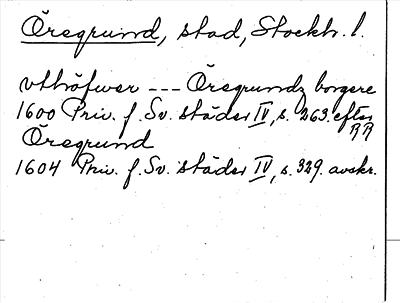 Öregrund, stad, Stockh. l.
vthöfwer --- Öregrundz borgere
1600 Priv. f. Sv. städer IV, s. 263. efter
RR
Öregrund
1604 Priv. f. Sv. städer IV, s. 329. avskr.